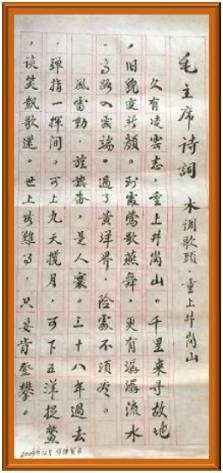 毛主席诗詞 水调歌頭·重上井崗山
久有凌雲志，重上井崗山。千里来寻故地
，旧貌变新颜。到處莺歌燕舞，更有潺潺流水
，高路入雲端。过了黄洋界，險處不須看。
風雷動，旌旗奋，是人寰。三十八年過去
，弹指一揮间。可上九天攬月，可下五洋捉鳖
，谈笑凱歌還。世上無難事，只要肯登攀。